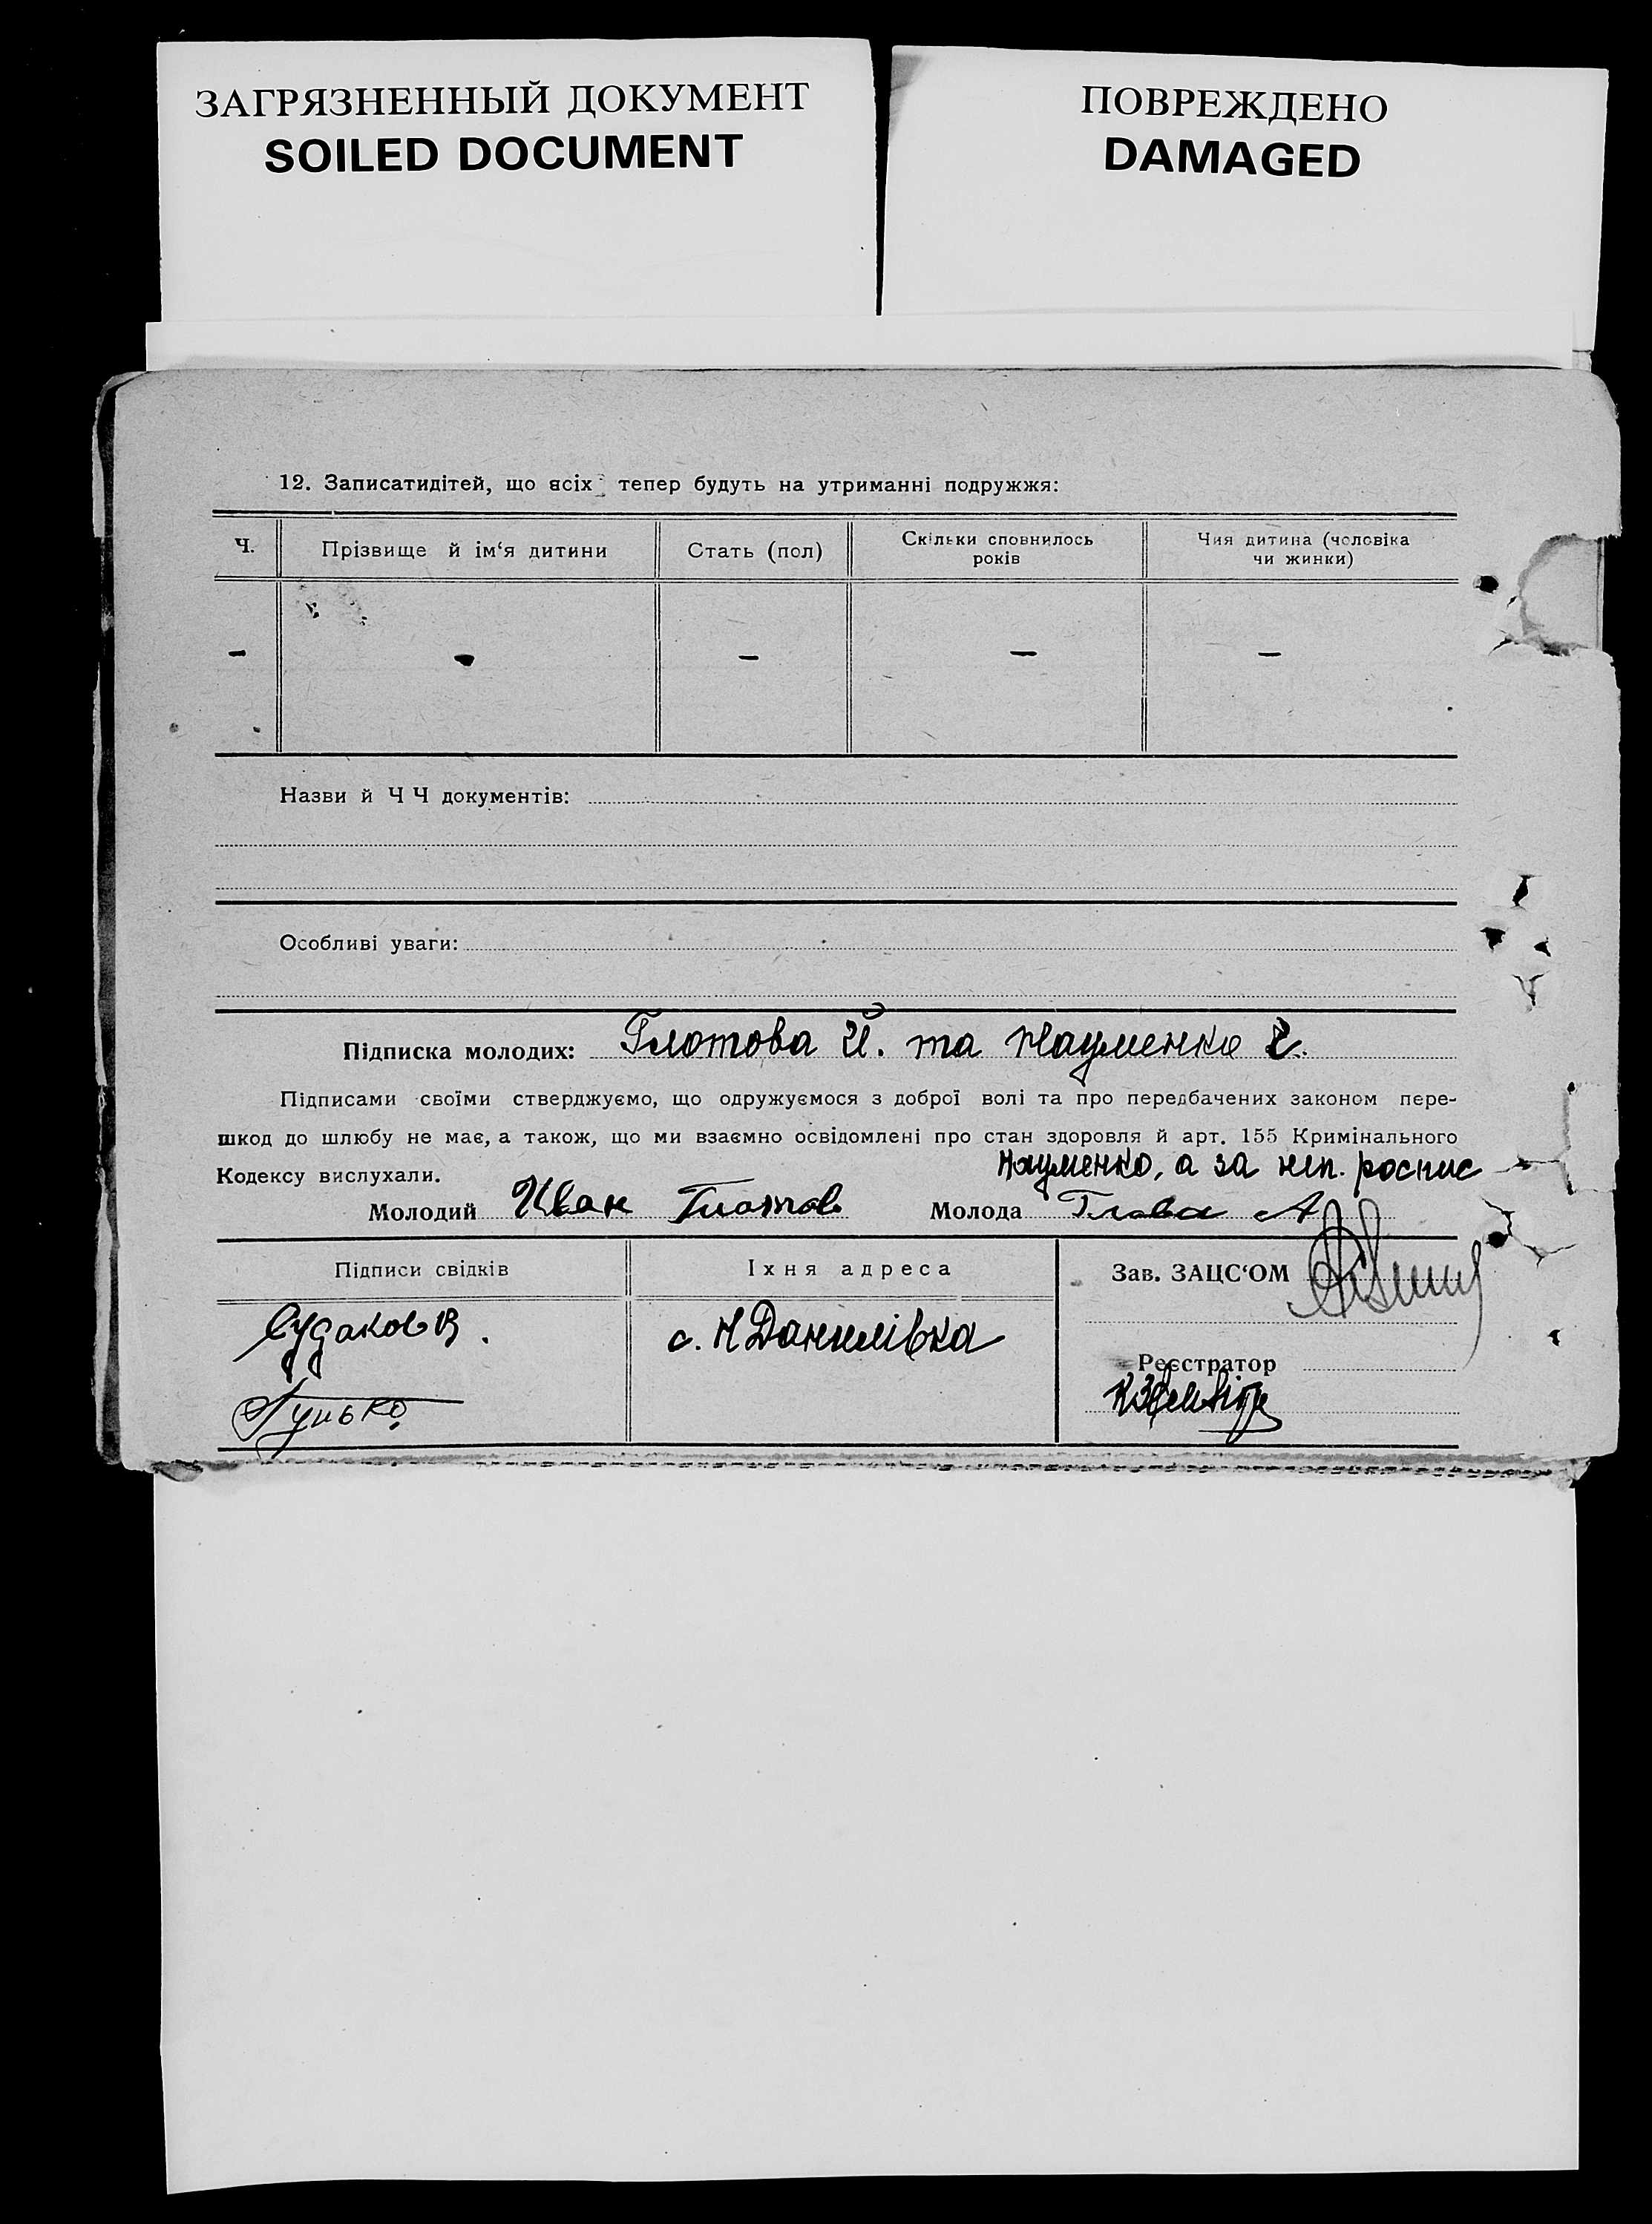 ЗАГРЯЗНЕННЫЙ ДОКУМЕНТ
SOILED DOCUMENT
ПОВРЕЖДЕНО
DAMAGED
12. Записатидітей, що всіх тепер будуть на утриманні подружжя:
Ч. Прізвище й ім‘я дитини Стать (пол) Скільки сповнилось років Чия дитина (чоловіка чи жинки)
— — — — —
Назви й Ч Ч документів:
Особливі уваги:
Підписка молодих: Глотова Й. та Науменко
Підписами своїми стверджуємо, що одружуємося з доброї волі та про передбачених законом пере-
шкод до шлюбу не має, а також, що ми взаємно освідомлені про стан здоровля й арт. 155 Кримінального
Кодексу вислухали.
Науменко, а за неп. роспис
Молодий Иван Глотов Молода Глова А
Підписи свідків Їхня адреса Зав. ЗАЦС‘ОМ
Судаков В. с. Н Данилівка
Реєстратор
Гунько